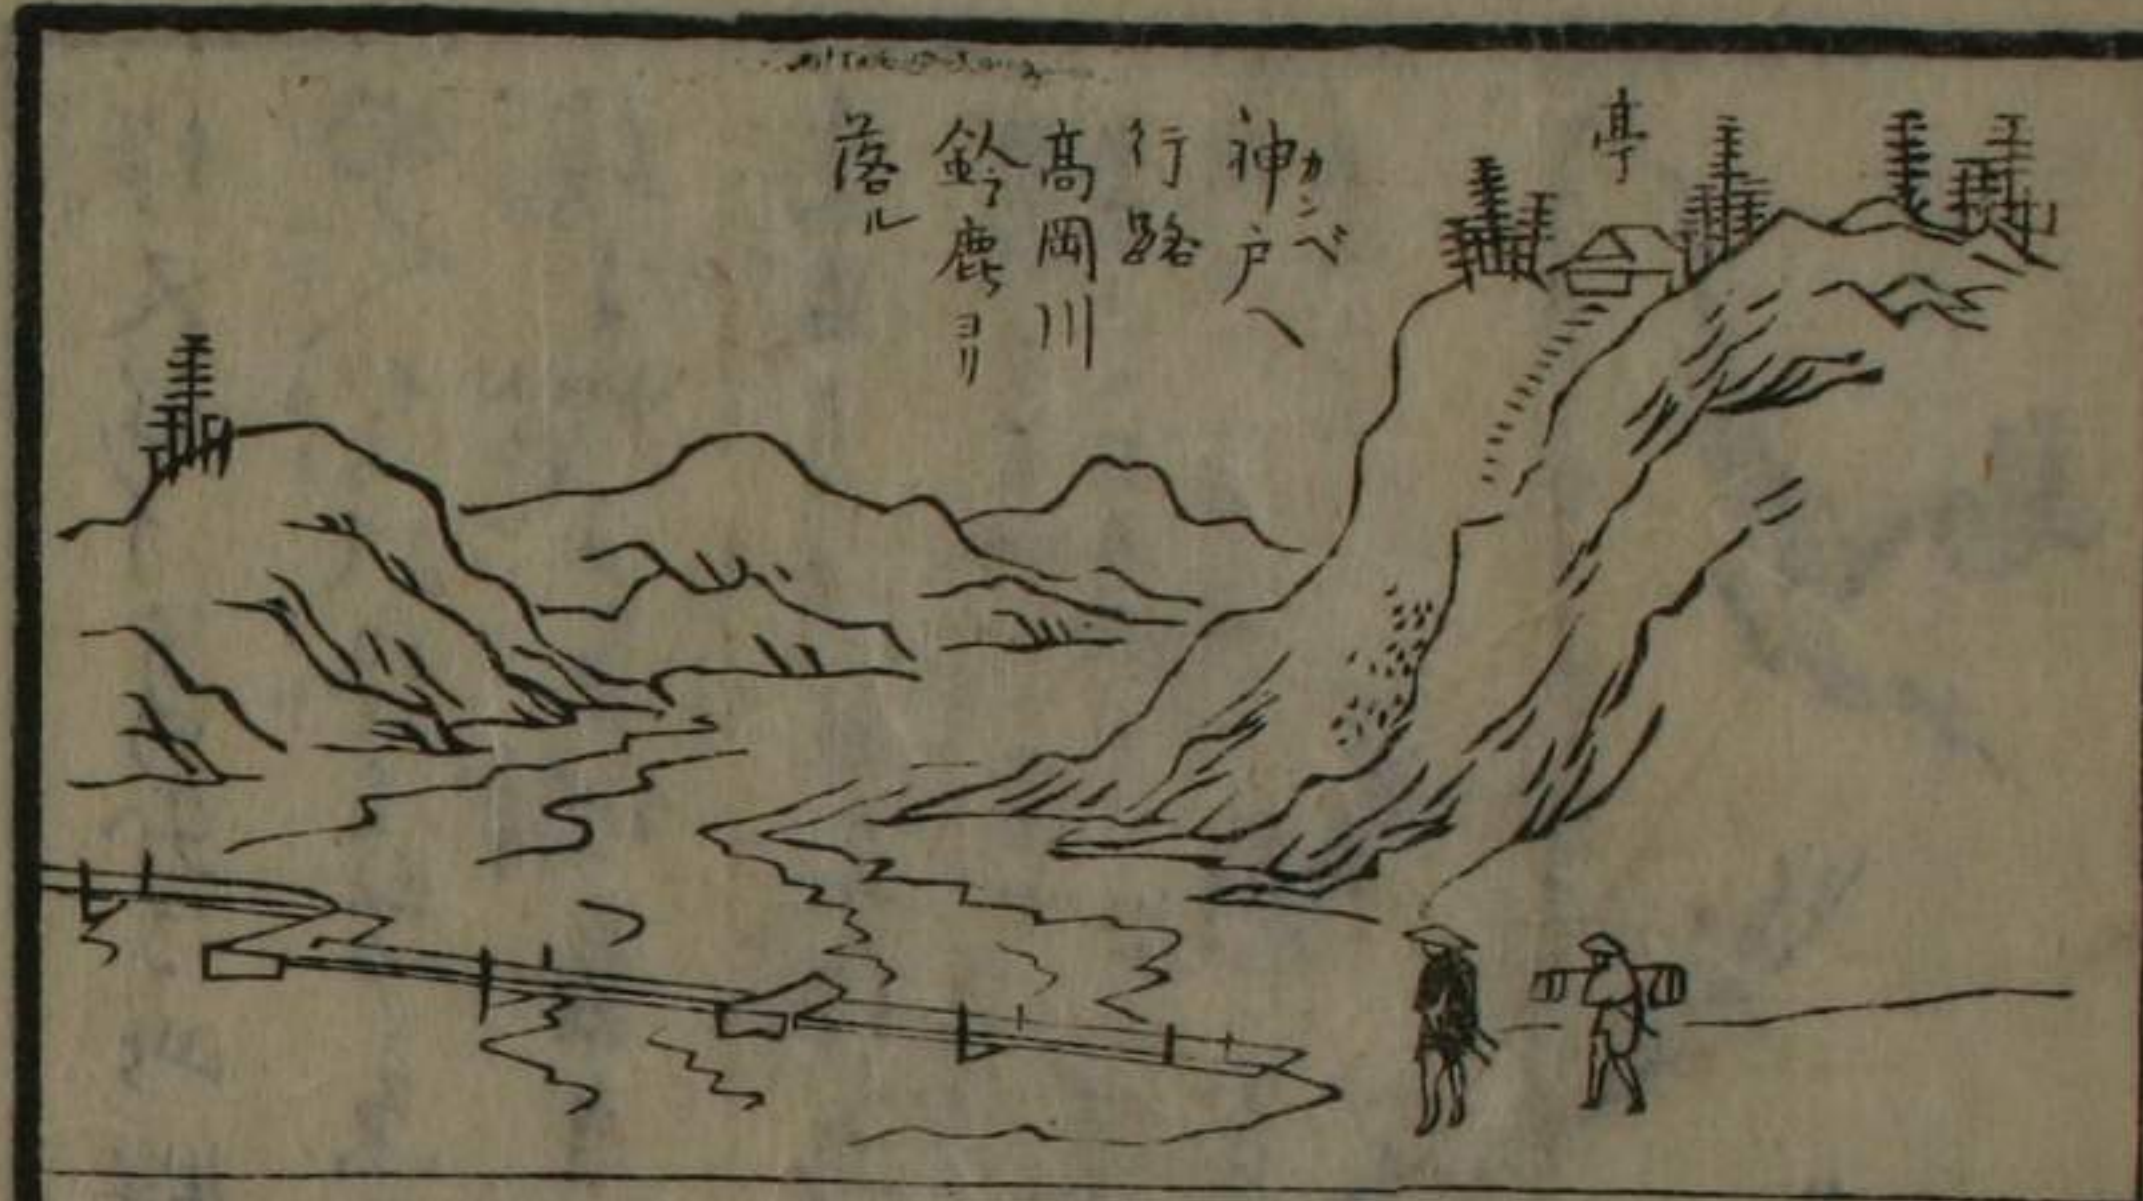 亭
神戸へ
カンベ
行路
高岡川
鈴鹿ヨリ
落ル